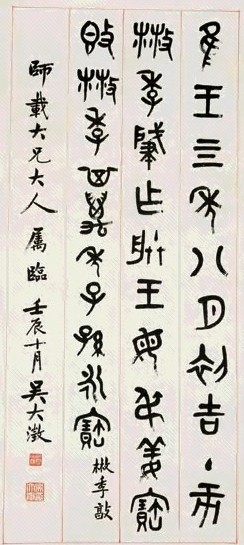 隹王四年八月初吉丁亥
散季肇作朕王母叔姜寶
敦散季其萬年子孫永寶 散季敦
師載大兄大人屬臨 壬辰十月 吳大澂